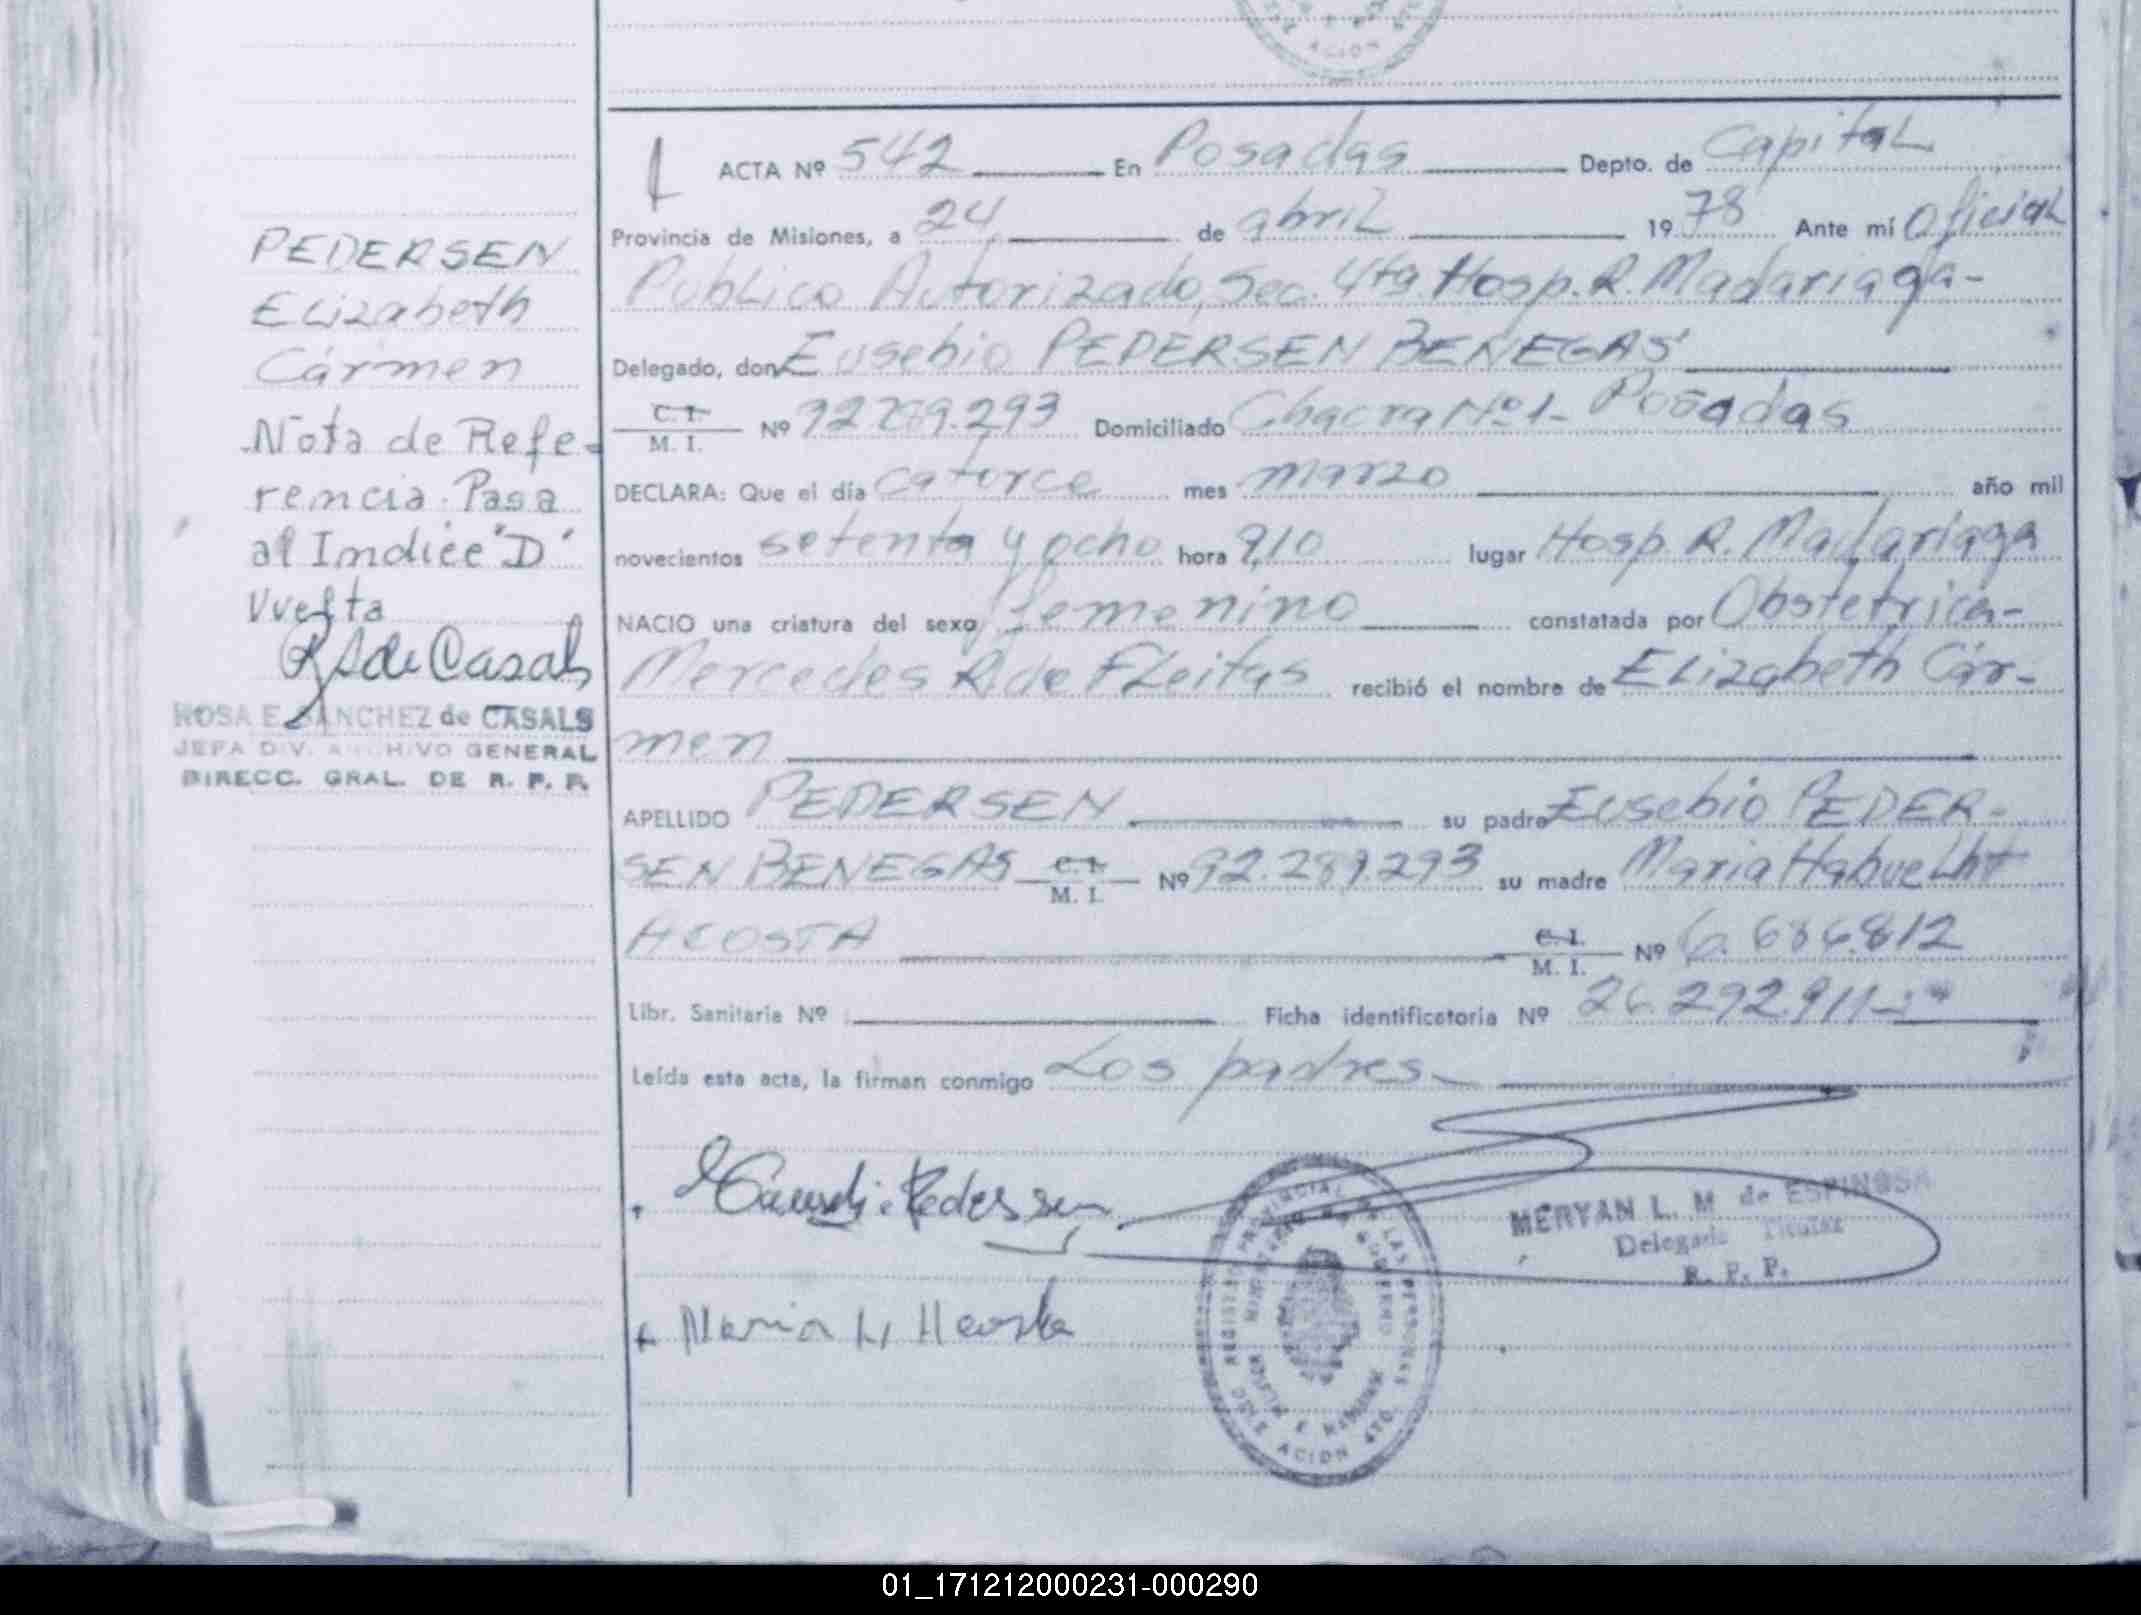 ACTA Nº 542 En Posadas Depto. de Capital
Provincia de Misiones, a 24 de abril 1978 Ante mí Oficial
Publico Autorizado, Sec. 4ta. Hosp. R. Madariaga-
Delegado, don Eusebio PEDERSEN BENEGAS
C. I.
M. I. Nº 92289.293 Domiciliado Chacra Nº1- Posadas
DECLARA: Que el día catorce mes marzo año mil
novecientos setenta y ocho hora 9,10 lugar Hosp. R. Madariaga
NACIO una criatura del sexo femenino constatada por Obstetrica-
Mercedes R. de FLeitas recibió el nombre de Elizabeth Cár-
men
APELLIDO PEDERSEN su padre Eusebio PEDER-
SEN BENEGAS C. I.
M. I. Nº 92.289.293 su madre Maria
ACOSTA C. I.
M. I. Nº 6.686.812
Libr. Sanitaria Nº Ficha identificatoria Nº 26.292.911-
Leída esta acta, la firman conmigo Los padres-
PEDERSEN
Elizabeth
Cármen
Nota de Refe-
rencia: Pasa
al Indice "D"
Vuelta
R S de Casals
ROSA E. SANCHEZ de CASALS
JEFA DIV. ARCHIVO GENERAL
DIRECC. GRAL. DE R. P. P.
Pedersen
Maria H. Acosta
MERYAN L. M de ESPINOSA
Delegada Titular
R. P. P.
REGISTRO PROVINCIAL DE LAS PERSONAS
MINISTERIO DE GOBIERNO
DELEGACION 4TO.
01_171212000231-000290